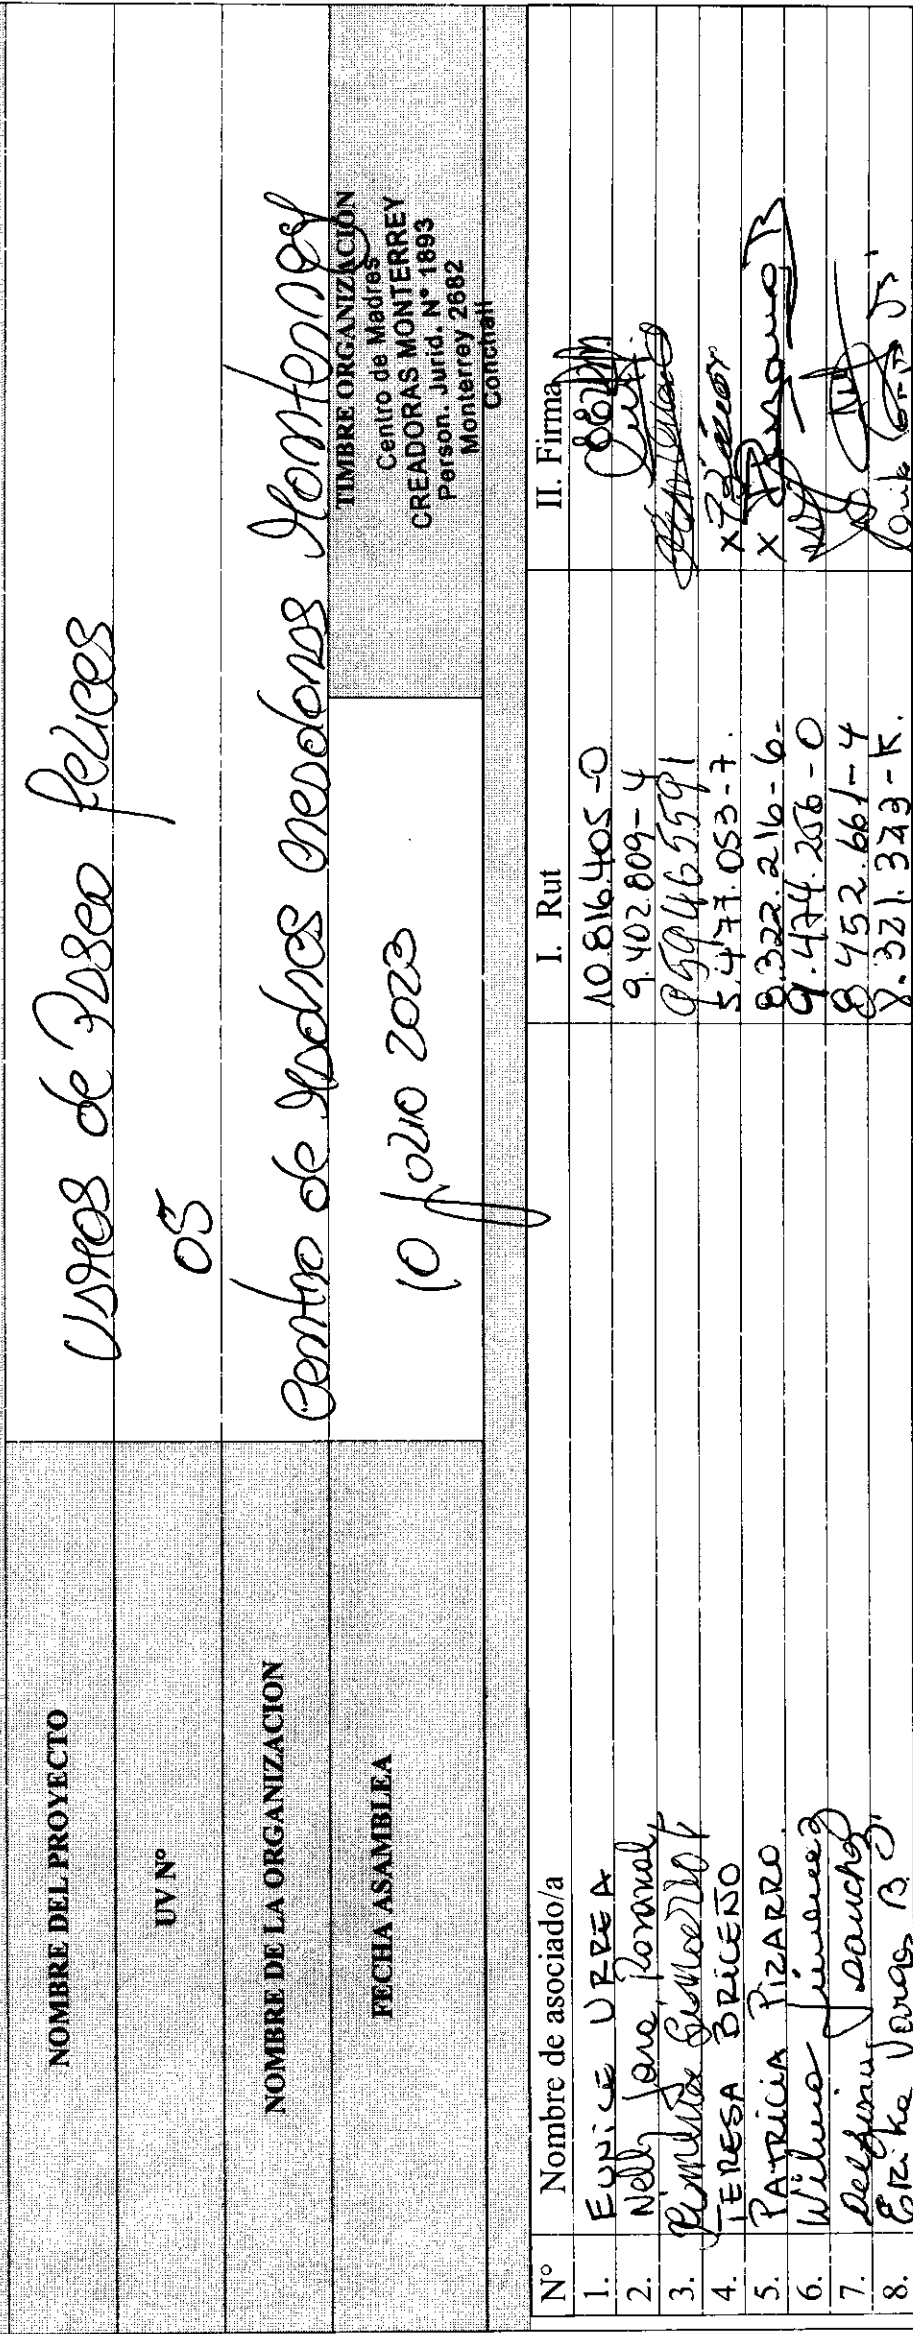 NOMBRE DEL PROYECTO vamos de Paseo felices
UV N° 05
NOMBRE DE LA ORGANIZACION Centro de Madres creadoras Monterrey
FECHA ASAMBLEA 10 julio 2023
TIMBRE ORGANIZACIÓN
Centro de Madres
CREADORAS MONTERREY
Person. Jurid. N° 1893
Monterrey 2682
Conchalí
N° Nombre de asociado/a I. Rut II. Firma
1. EUNICE URREA 10.816.405-0
2. Nelly Jara 9.402.809-4
3. 059465591
4. TERESA BRICEÑO 5.477.053-7. x
5. PATRICIA PIZARRO. 8.322.216-6- x
6. Wilma Jimenez 9.474.256-0
7. Delfina Sanchez 8.452.661-4
8. Erika Vargas B. 8.321.323-K.